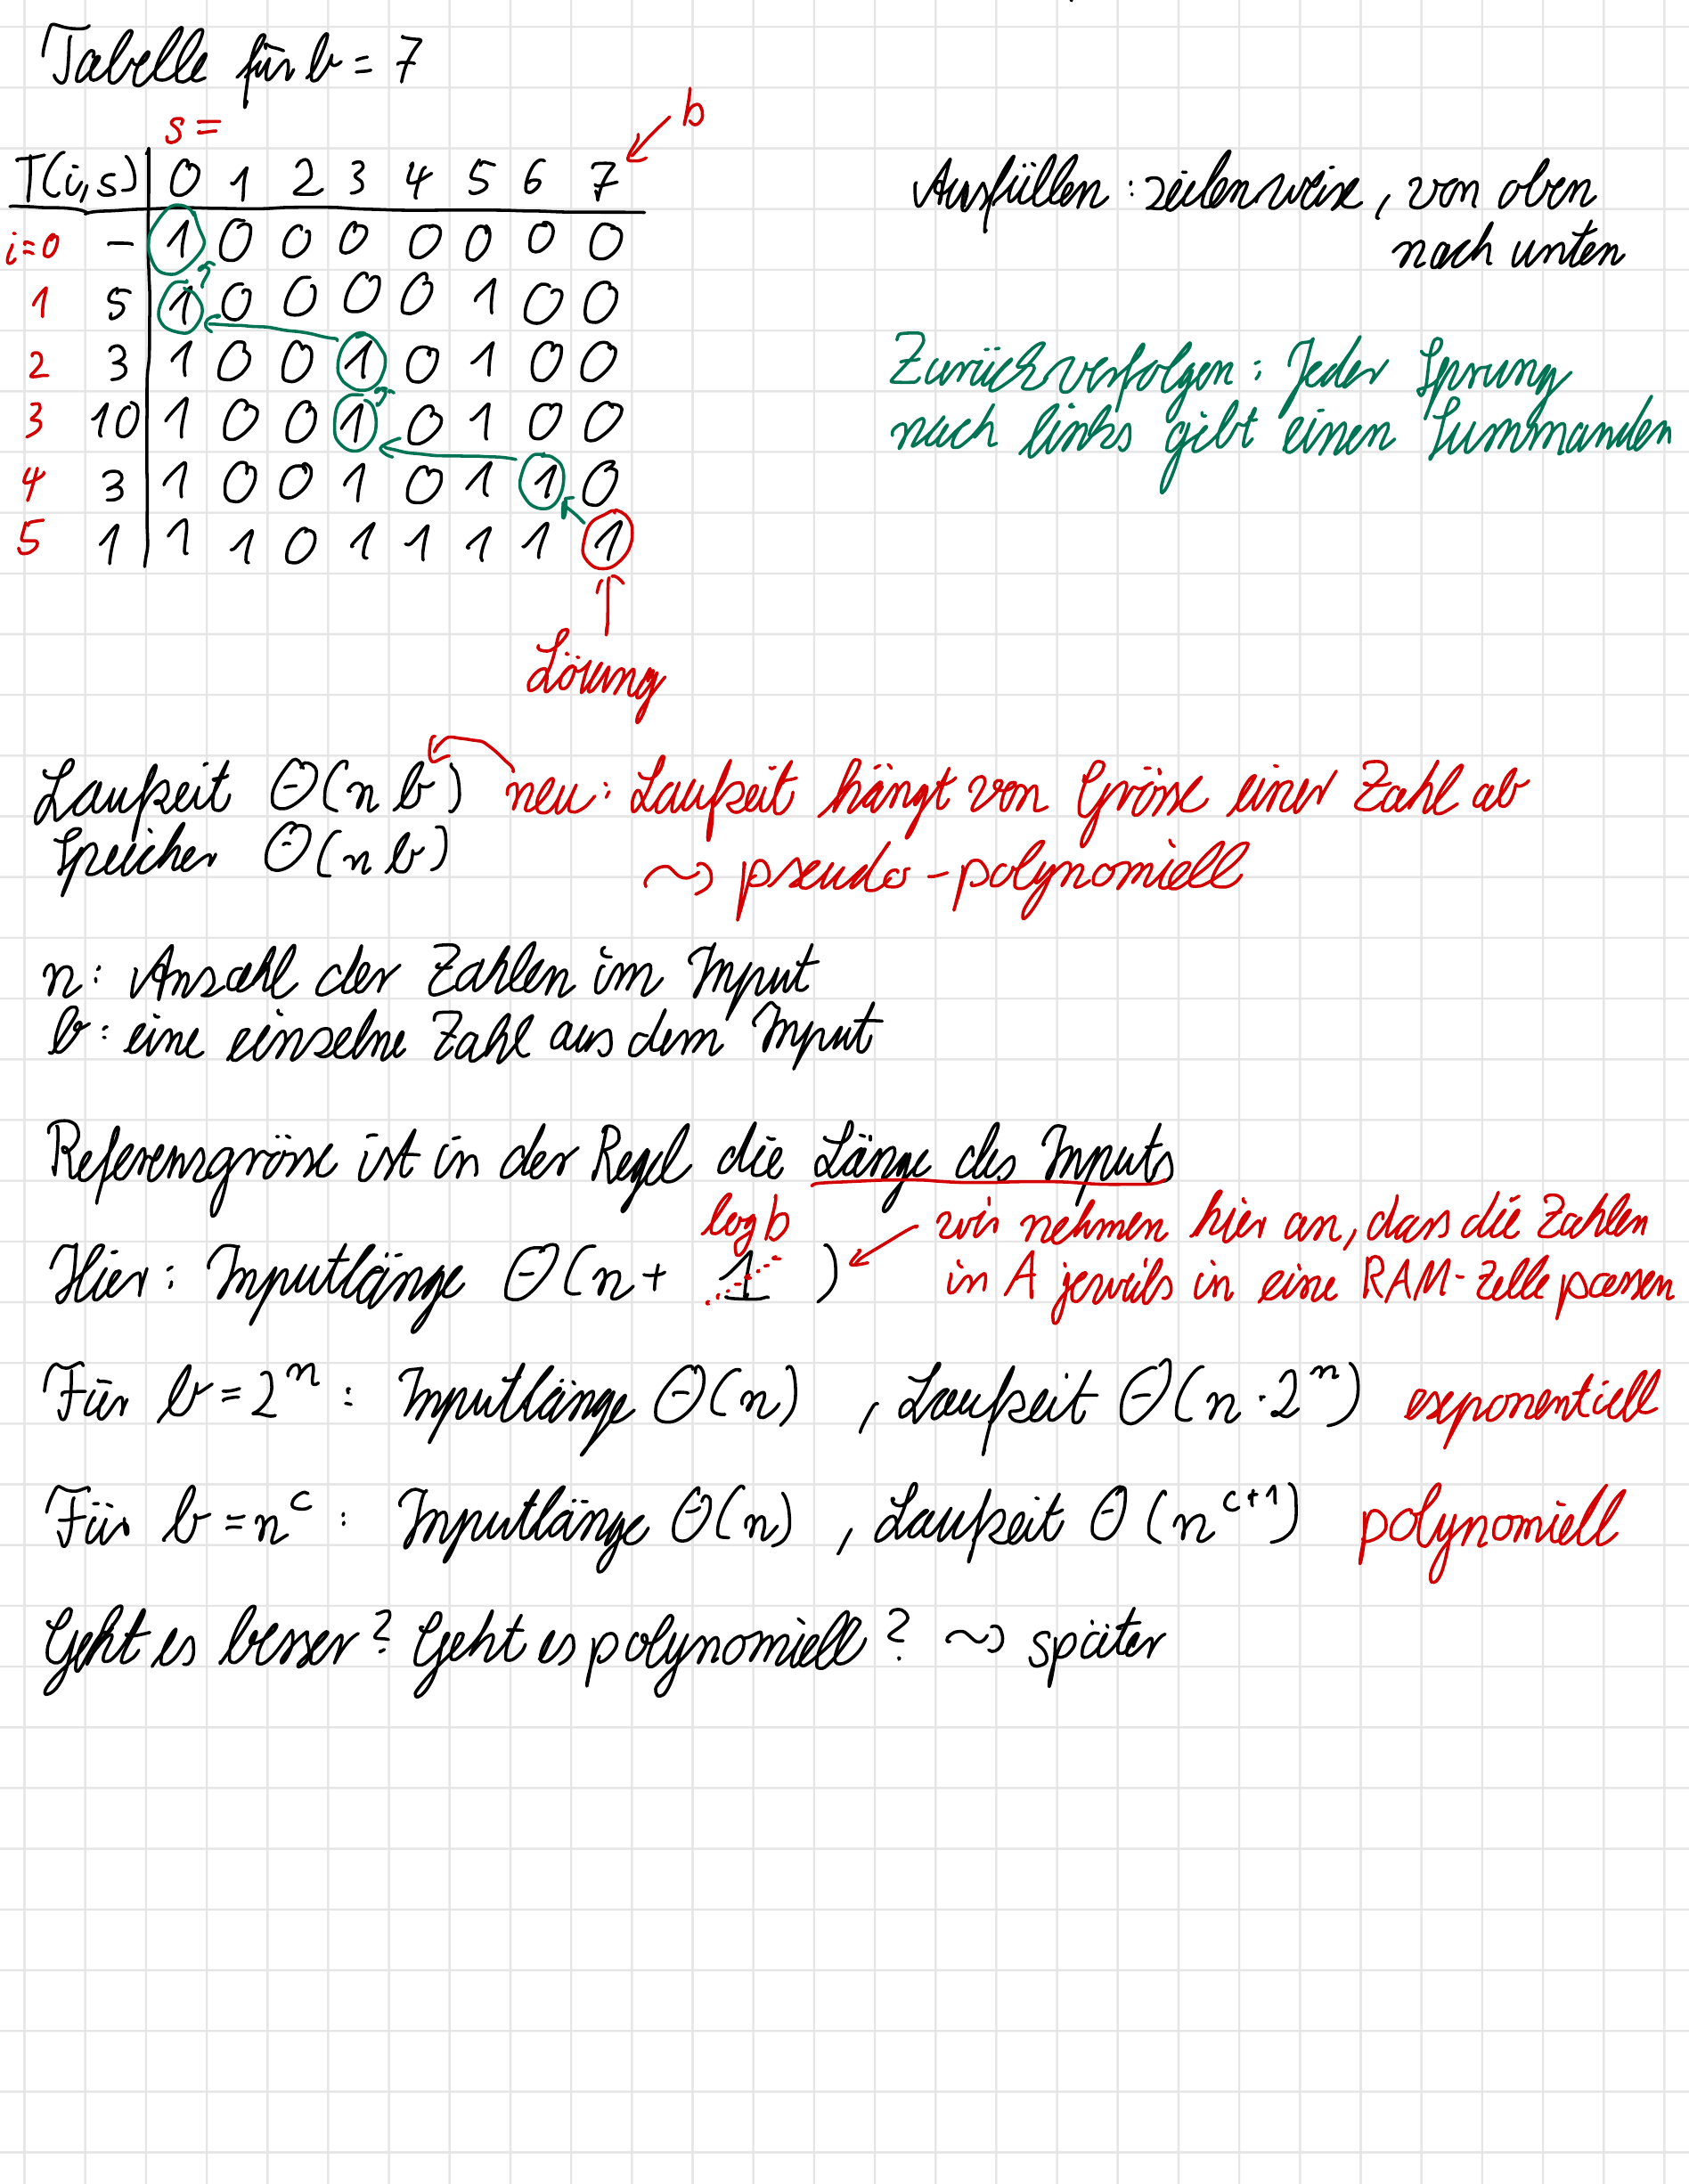 Tabelle für b = 7
s =
b
T(i,s) 0 1 2 3 4 5 6 7
i=0 – 1 0 0 0 0 0 0 0
1 5 1 0 0 0 0 1 0 0
2 3 1 0 0 1 0 1 0 0
3 10 1 0 0 1 0 1 0 0
4 3 1 0 0 1 0 1 1 0
5 1 1 1 0 1 1 1 1 1
Lösung
Ausfüllen : zeilenweise, von oben
nach unten
Zurückverfolgen : Jeder Sprung
nach links gibt einen Summanden
Laufzeit Θ(n b) neu: Laufzeit hängt von Grösse einer Zahl ab
Speicher Θ(n b) ⇝ pseudo-polynomiell
n: Anzahl der Zahlen im Input
b: eine einzelne Zahl aus dem Input
Referenzgrösse ist in der Regel die Länge des Inputs
log b wir nehmen hier an, dass die Zahlen
Hier: Inputlänge Θ(n + 1) in A jeweils in eine RAM-Zelle passen
Für b = 2ⁿ : Inputlänge Θ(n) , Laufzeit Θ(n·2ⁿ) exponentiell
Für b = n^c : Inputlänge Θ(n) , Laufzeit Θ(n^(c+1)) polynomiell
Geht es besser? Geht es polynomiell? ⇝ später